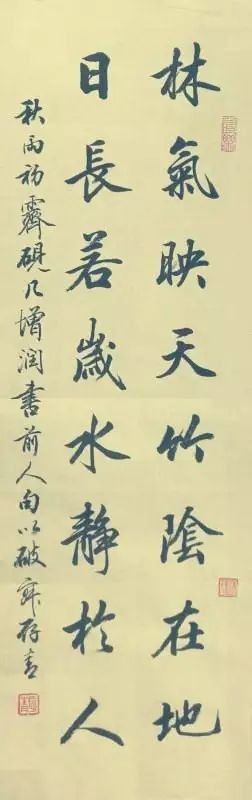 林氣映天竹陰在地
日長若歲水靜於人
秋雨初霽硯几增潤書前人句以破寂存青